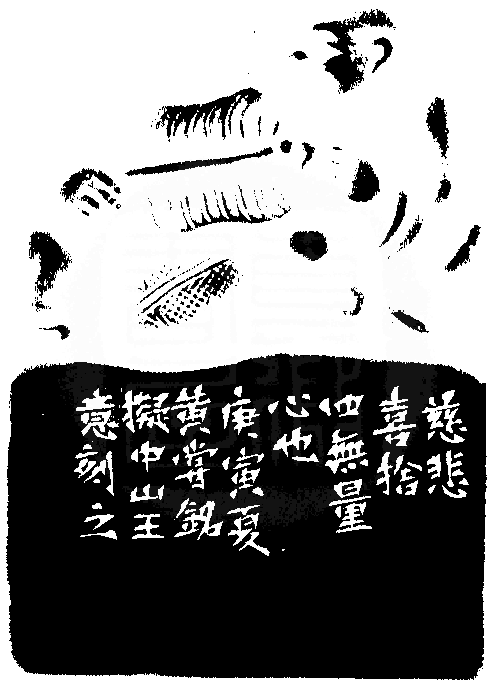 慈悲
喜捨
四無量
心也
庚寅夏
黃嘗銘
擬中山王
意刻之